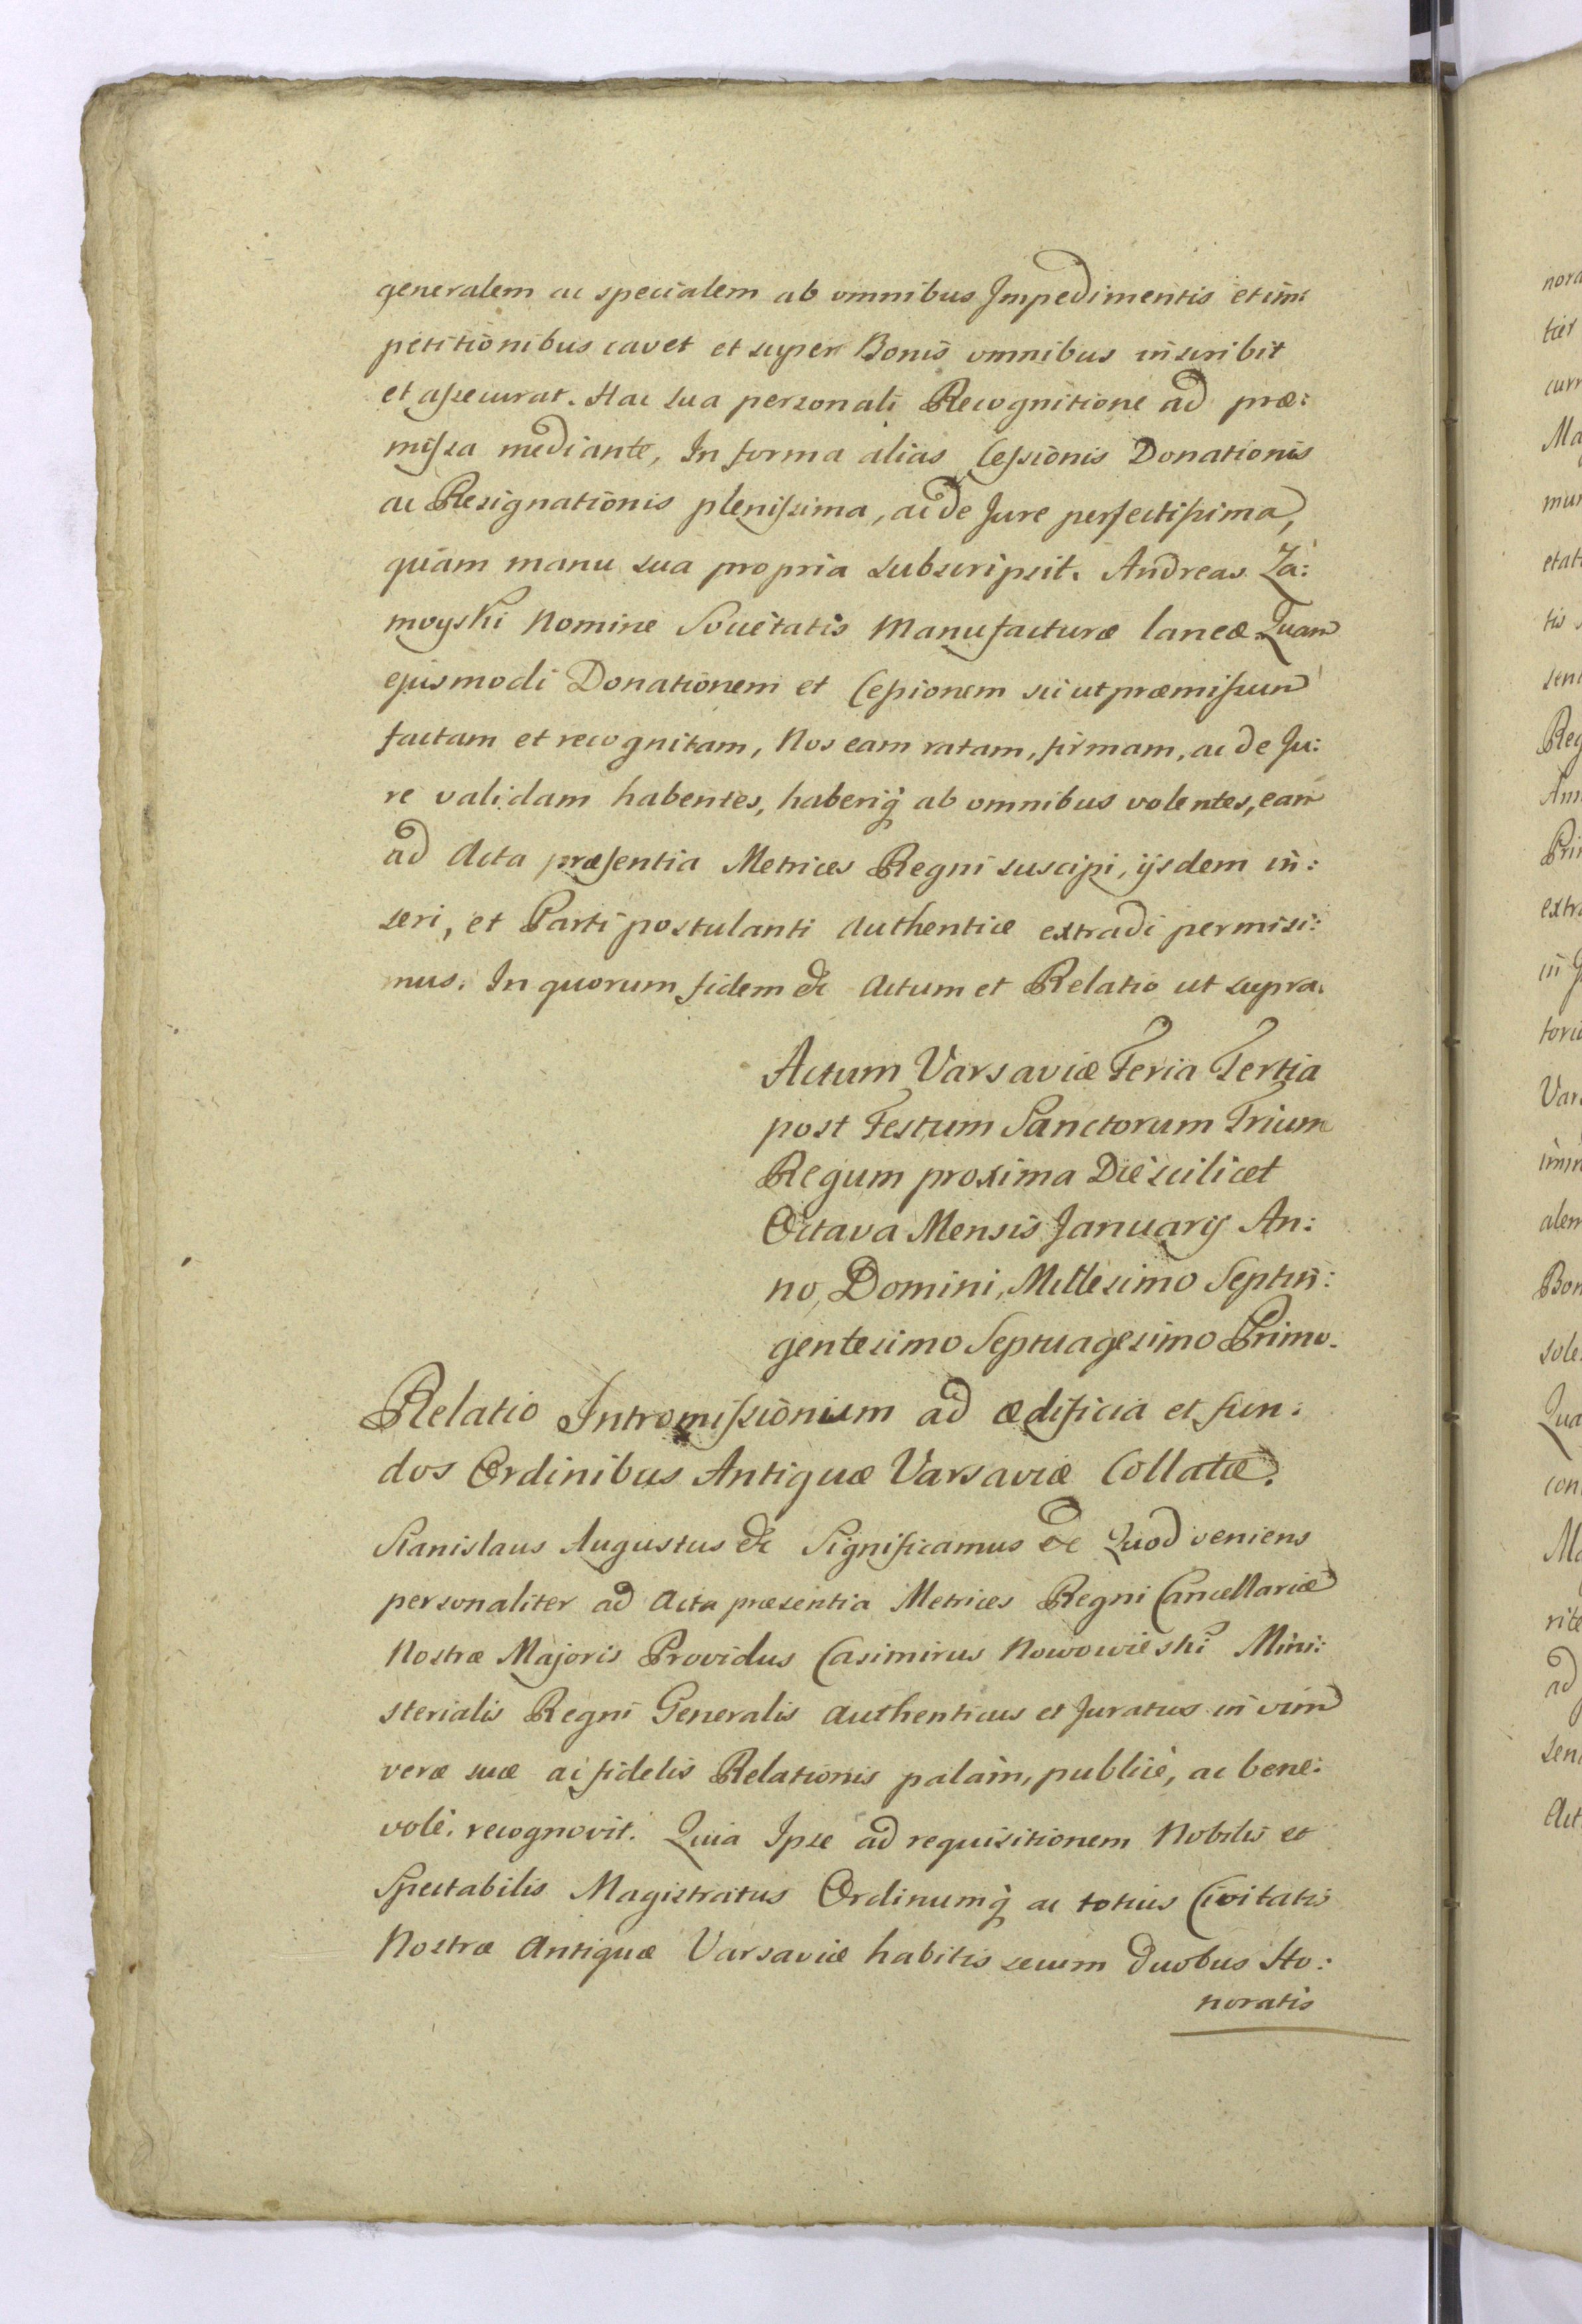 generalem ac specialem ab omnibus Impedimentis et im:
petitionibus cavet et super Bonis omnibus inscribit
et aſsecurat. Hac sua personali Recognitione ad præ:
miſsa mediante, In forma alias Ceſsionis Donationis
ac Resignationis pleniſsima, ac de Jure perfectiſsima,
quam manu sua propria subscripsit. Andreas Za:
moyski Nomine Societatis Manufacturæ laneæ. Quam
ejusmodi Donationem et Ceſsionem sic ut præmiſsum
factam et recognitam, Nos eam ratam, firmam, ac de Ju:
re validam habentes, haberiq́ ab omnibus volentes, eam
ad Acta præſentia Metrices Regni suscipi, ijsdem in:
seri, et Parti postulanti Authentice extradi permisi:
mus. In quorum fidem &c Actum et Relatio ut supra.
Actum Varsaviæ Feria Tertia
post Festum Sanctorum Trium
Regum proxima Die scilicet
Octava Mensis Januarij An:
no Domini, Millesimo Septin:
gentesimo Septuagesimo Primo.
Relatio Intromiſsionum ad ædificia et fun:
dos Ordinibus Antiquæ Varsaviæ Collatæ.
Stanislaus Augustus &c Significamus &c Quod veniens
personaliter ad Acta præsentia Metrices Regni Cancellariæ
Nostræ Majoris Providus Casimirus Nowowieski Mini:
sterialis Regni Generalis Authenticus et Juratus in vim
veræ suæ ac fidelis Relationis palàm, publicè, ac bene:
volè. recognovit. Quia Ipse ad requisitionem Nobilis et
Spectabilis Magistratus Ordinumq́ ac totius Civitatis
Nostræ Antiquæ Varsaviæ habitis secum Duobus Ho:
noratis